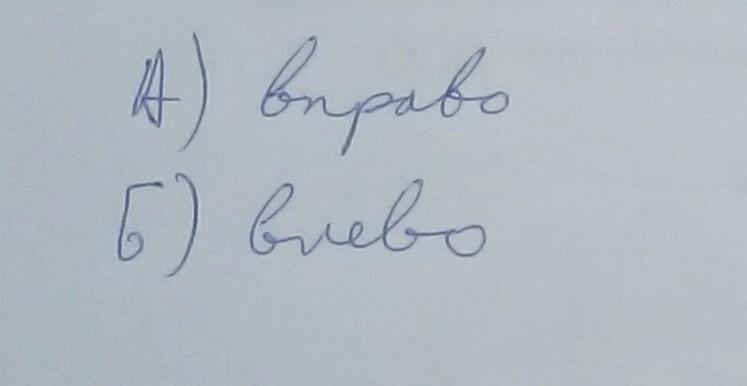 А) вправо
Б) влево